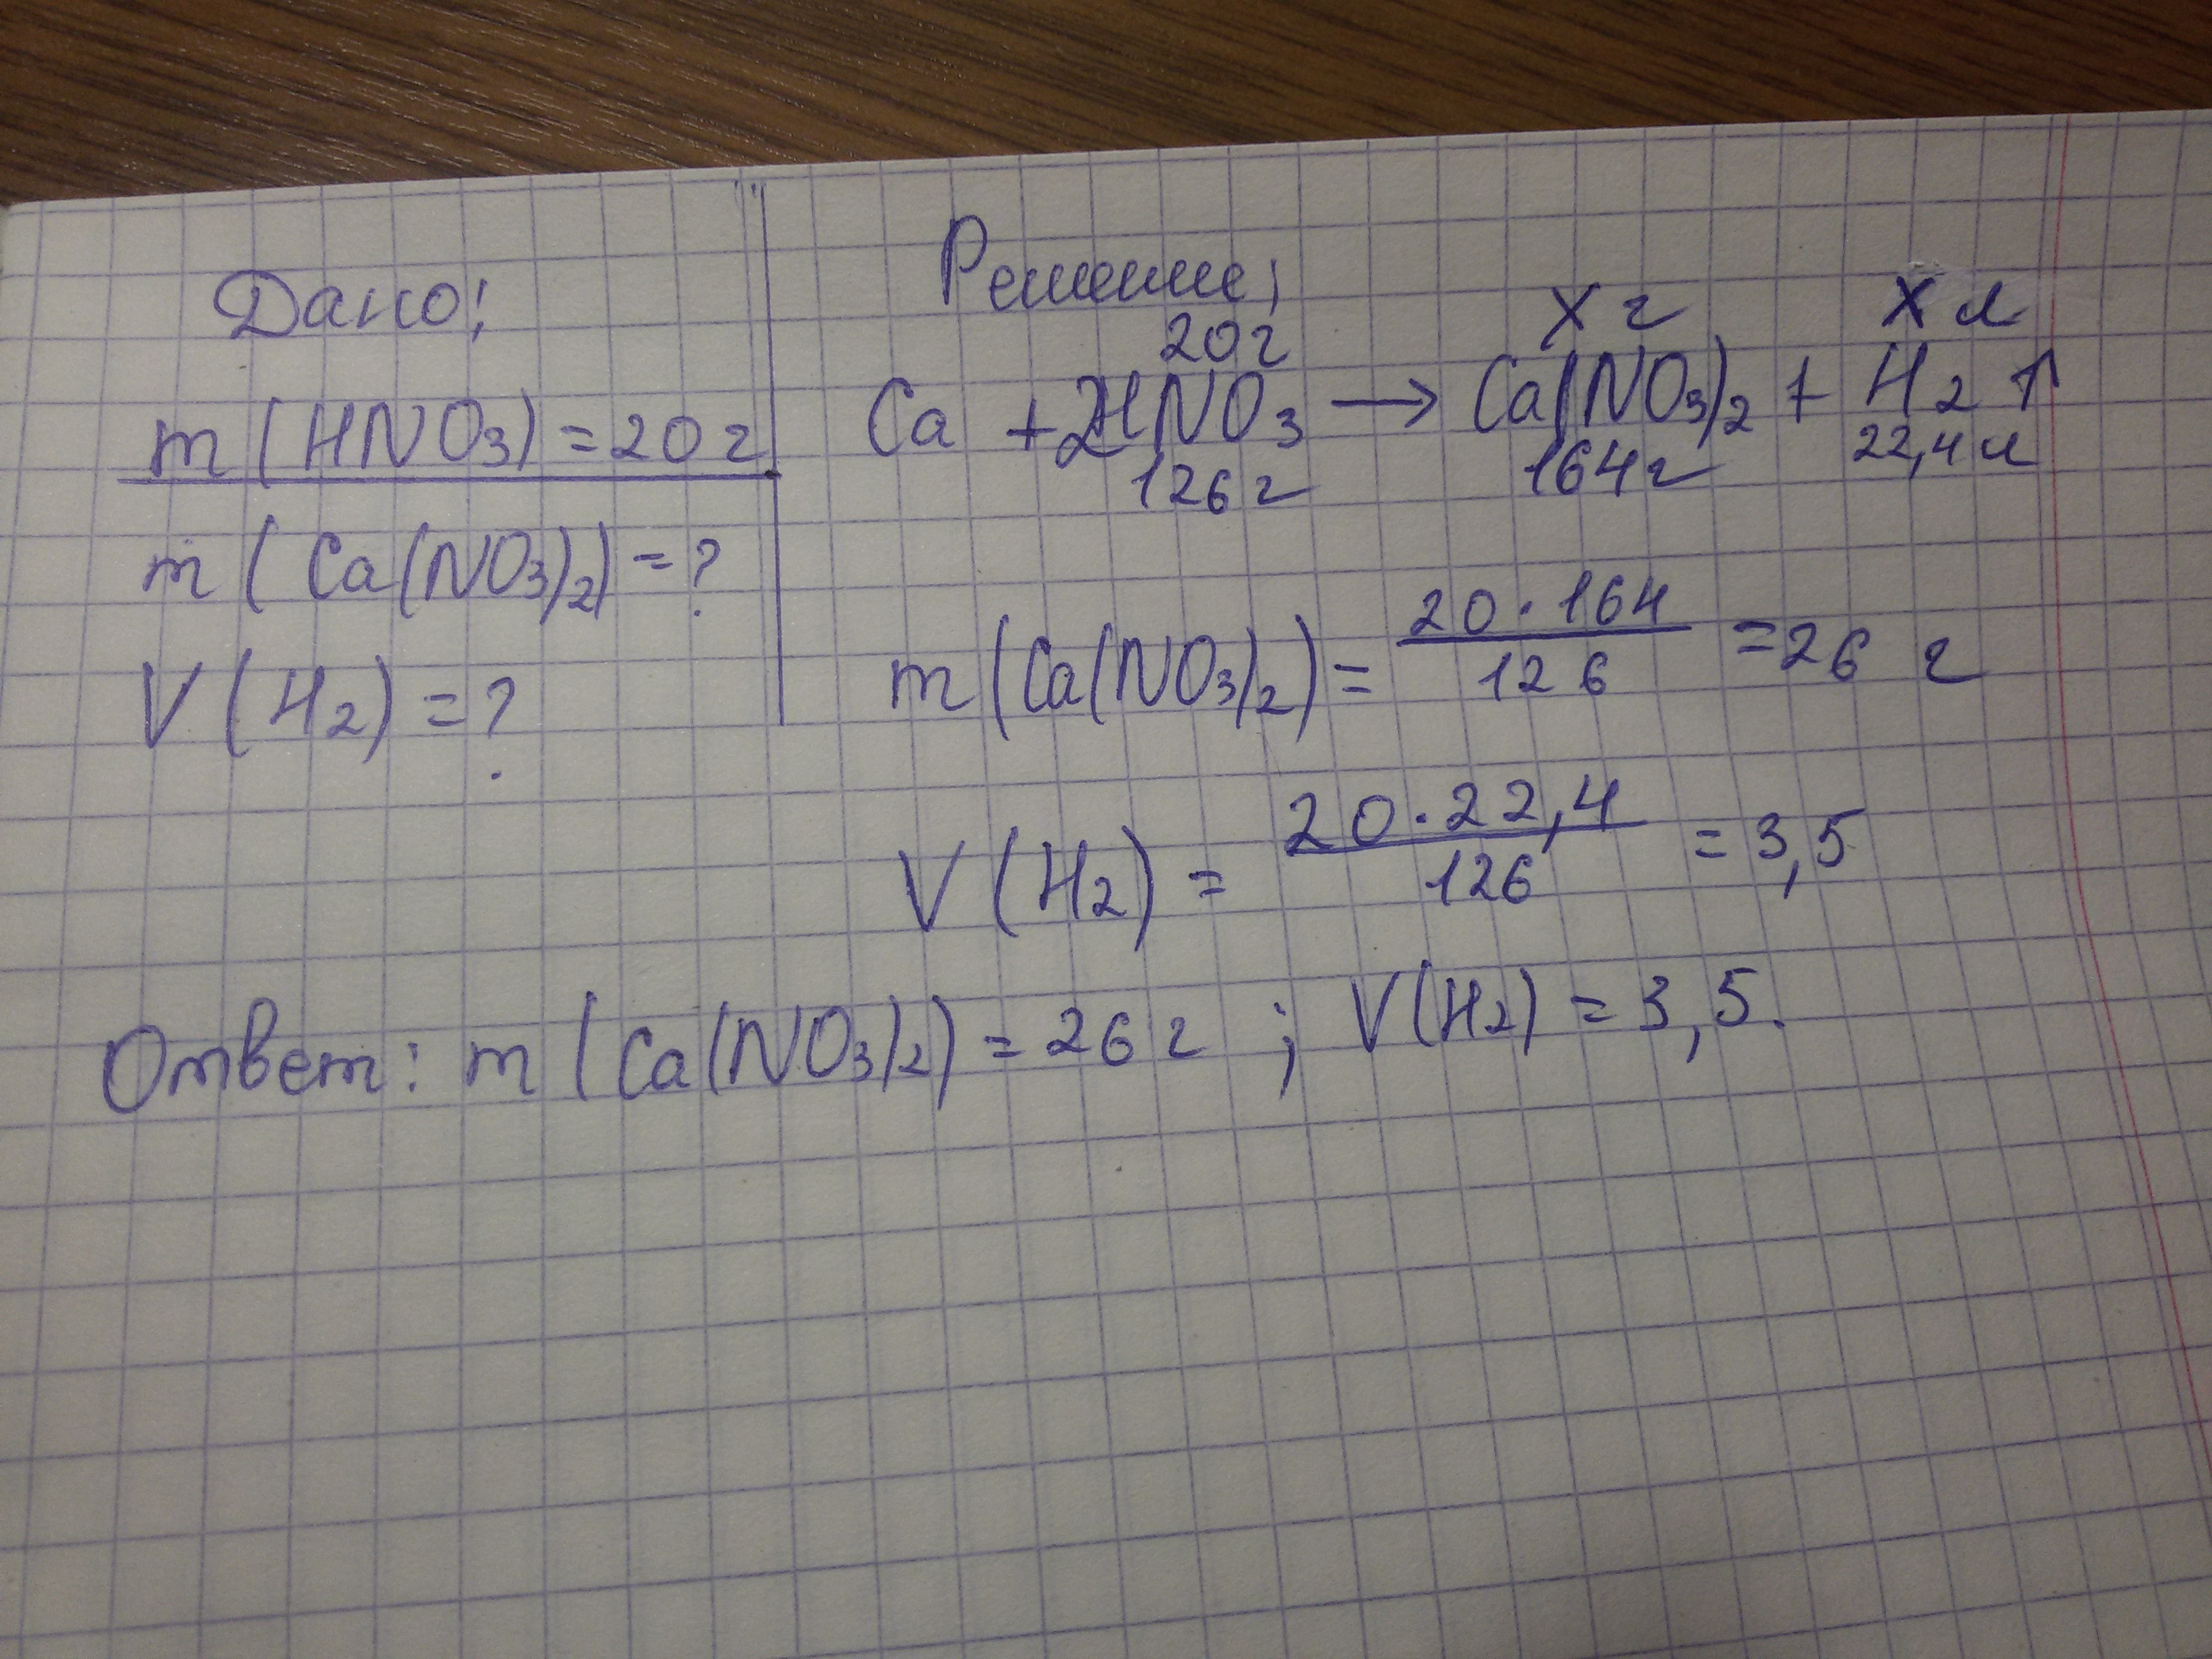 Дано:
m(HNO3)=20г
m(Ca(NO3)2)=?
V(H2)=?
Решение:
20г Xг Xл
Ca + 2HNO3 → Ca(NO3)2 + H2↑
126г 164г 22,4л
m(Ca(NO3)2)= 20·164 / 126 =26 г
V(H2) = 20·22,4 / 126 = 3,5
Ответ: m(Ca(NO3)2)=26г ; V(H2)=3,5.